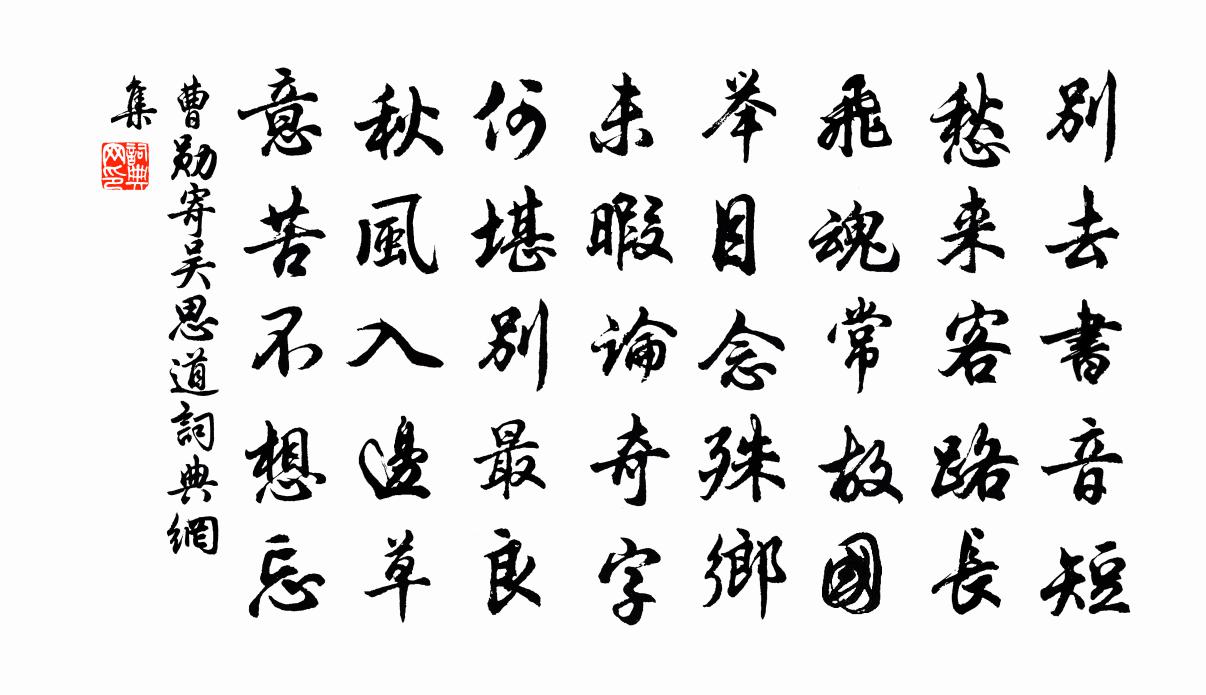 別去書音短
愁来客路長
飛魂常故國
举目念殊鄉
未暇論奇字
何堪別最良
秋風入邊草
意苦不想忘
曹勛寄吴思道詞典網
集
詞典
网印